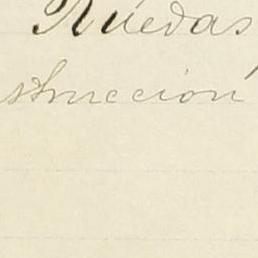 Ruedas
strucción